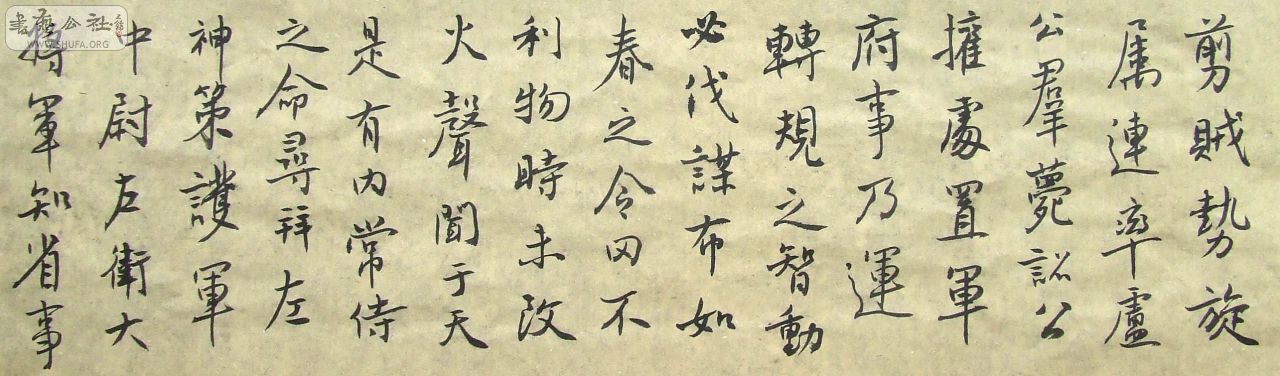 剪賊勢旋
屬連率盧
公羣薨詔公
擁處置軍
府事乃運
轉規之智動
必伐謀布如
春之令罔不
利物時未改
火聲聞于天
是有內常侍
之命尋拜左
神策護軍
中尉左衛大
將軍知省事
書法公社
WWW.SHUFA.ORG